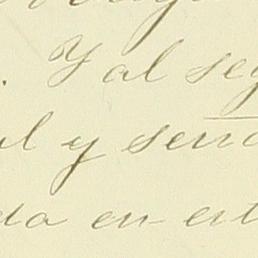 Y al seg
l y seña
da en est